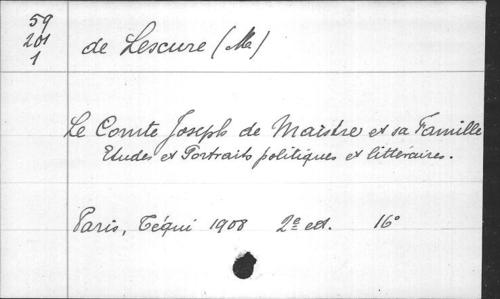 59
201
1
de Lescure (M.)
Le Comte Joseph de Maistre et sa Famille
Etudes et Portraits politiques et littéraires.
Paris, Téqui 1908 2e ed. 16°